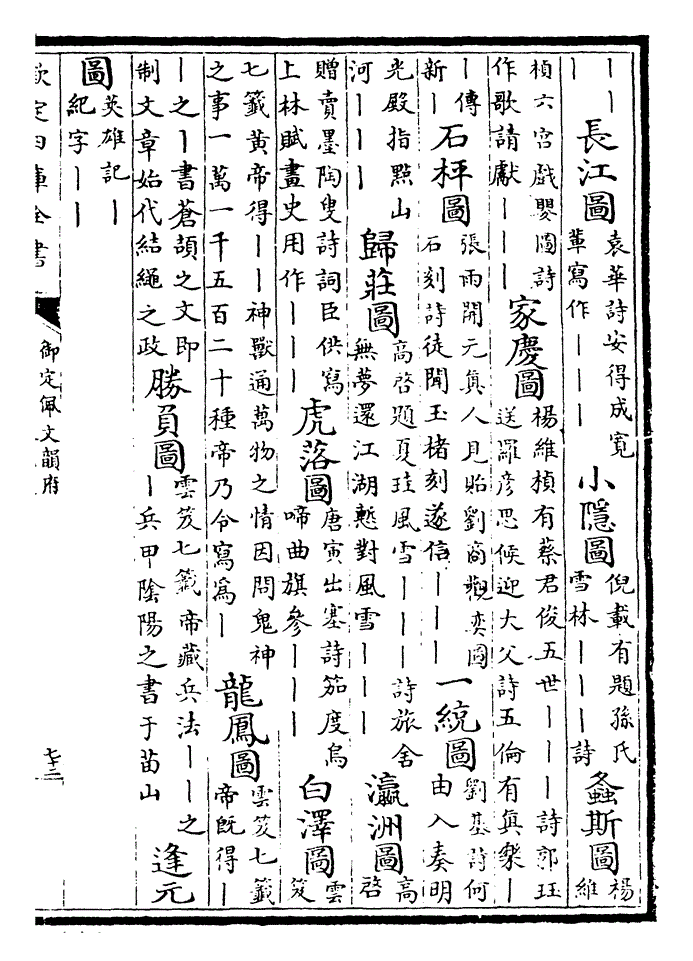 丨丨
丨
長江圖
袁華詩安得成寬
輩寫作丨丨丨
小隱圖
倪載有題孫氏
雪林丨丨丨詩
螽斯圖
楊
維
楨六宫戲嬰圖詩
作歌請獻丨丨丨
家慶圖
楊維楨有蔡君俊五世丨丨丨詩郭珏
送羅彦思候迎大父詩五倫有真樂丨
丨傳
新丨
石枰圖
張雨開元真人見貽劉商觀奕圖
石刻詩徒聞玉楮刻遂信丨丨丨
一統圖
劉基詩何
由入奏明
光殿指點山
河丨丨丨
歸莊圖
高啓題夏珪風雪丨丨丨詩旅舍
無夢還江湖慙對風雪丨丨丨
瀛洲圖
高
啓
贈賣墨陶叟詩詞臣供寫
上林賦畫史用作丨丨丨
虎落圖
唐寅出塞詩笳度烏
啼曲旗參丨丨丨
白澤圖
雲
笈
七籤黃帝得丨丨神獸通萬物之情因問鬼神
之事一萬一千五百二十種帝乃令寫爲丨
龍鳳圖
雲笈七籤
帝既得丨
丨之丨書蒼頡之文即
制文章始代結繩之政
勝負圖
雲笈七籤帝藏兵法丨丨之
丨兵甲陰陽之書于苗山
逢元
圖
英雄記丨
紀字丨丨
欽定四庫全書
御定佩文韻府
七十三